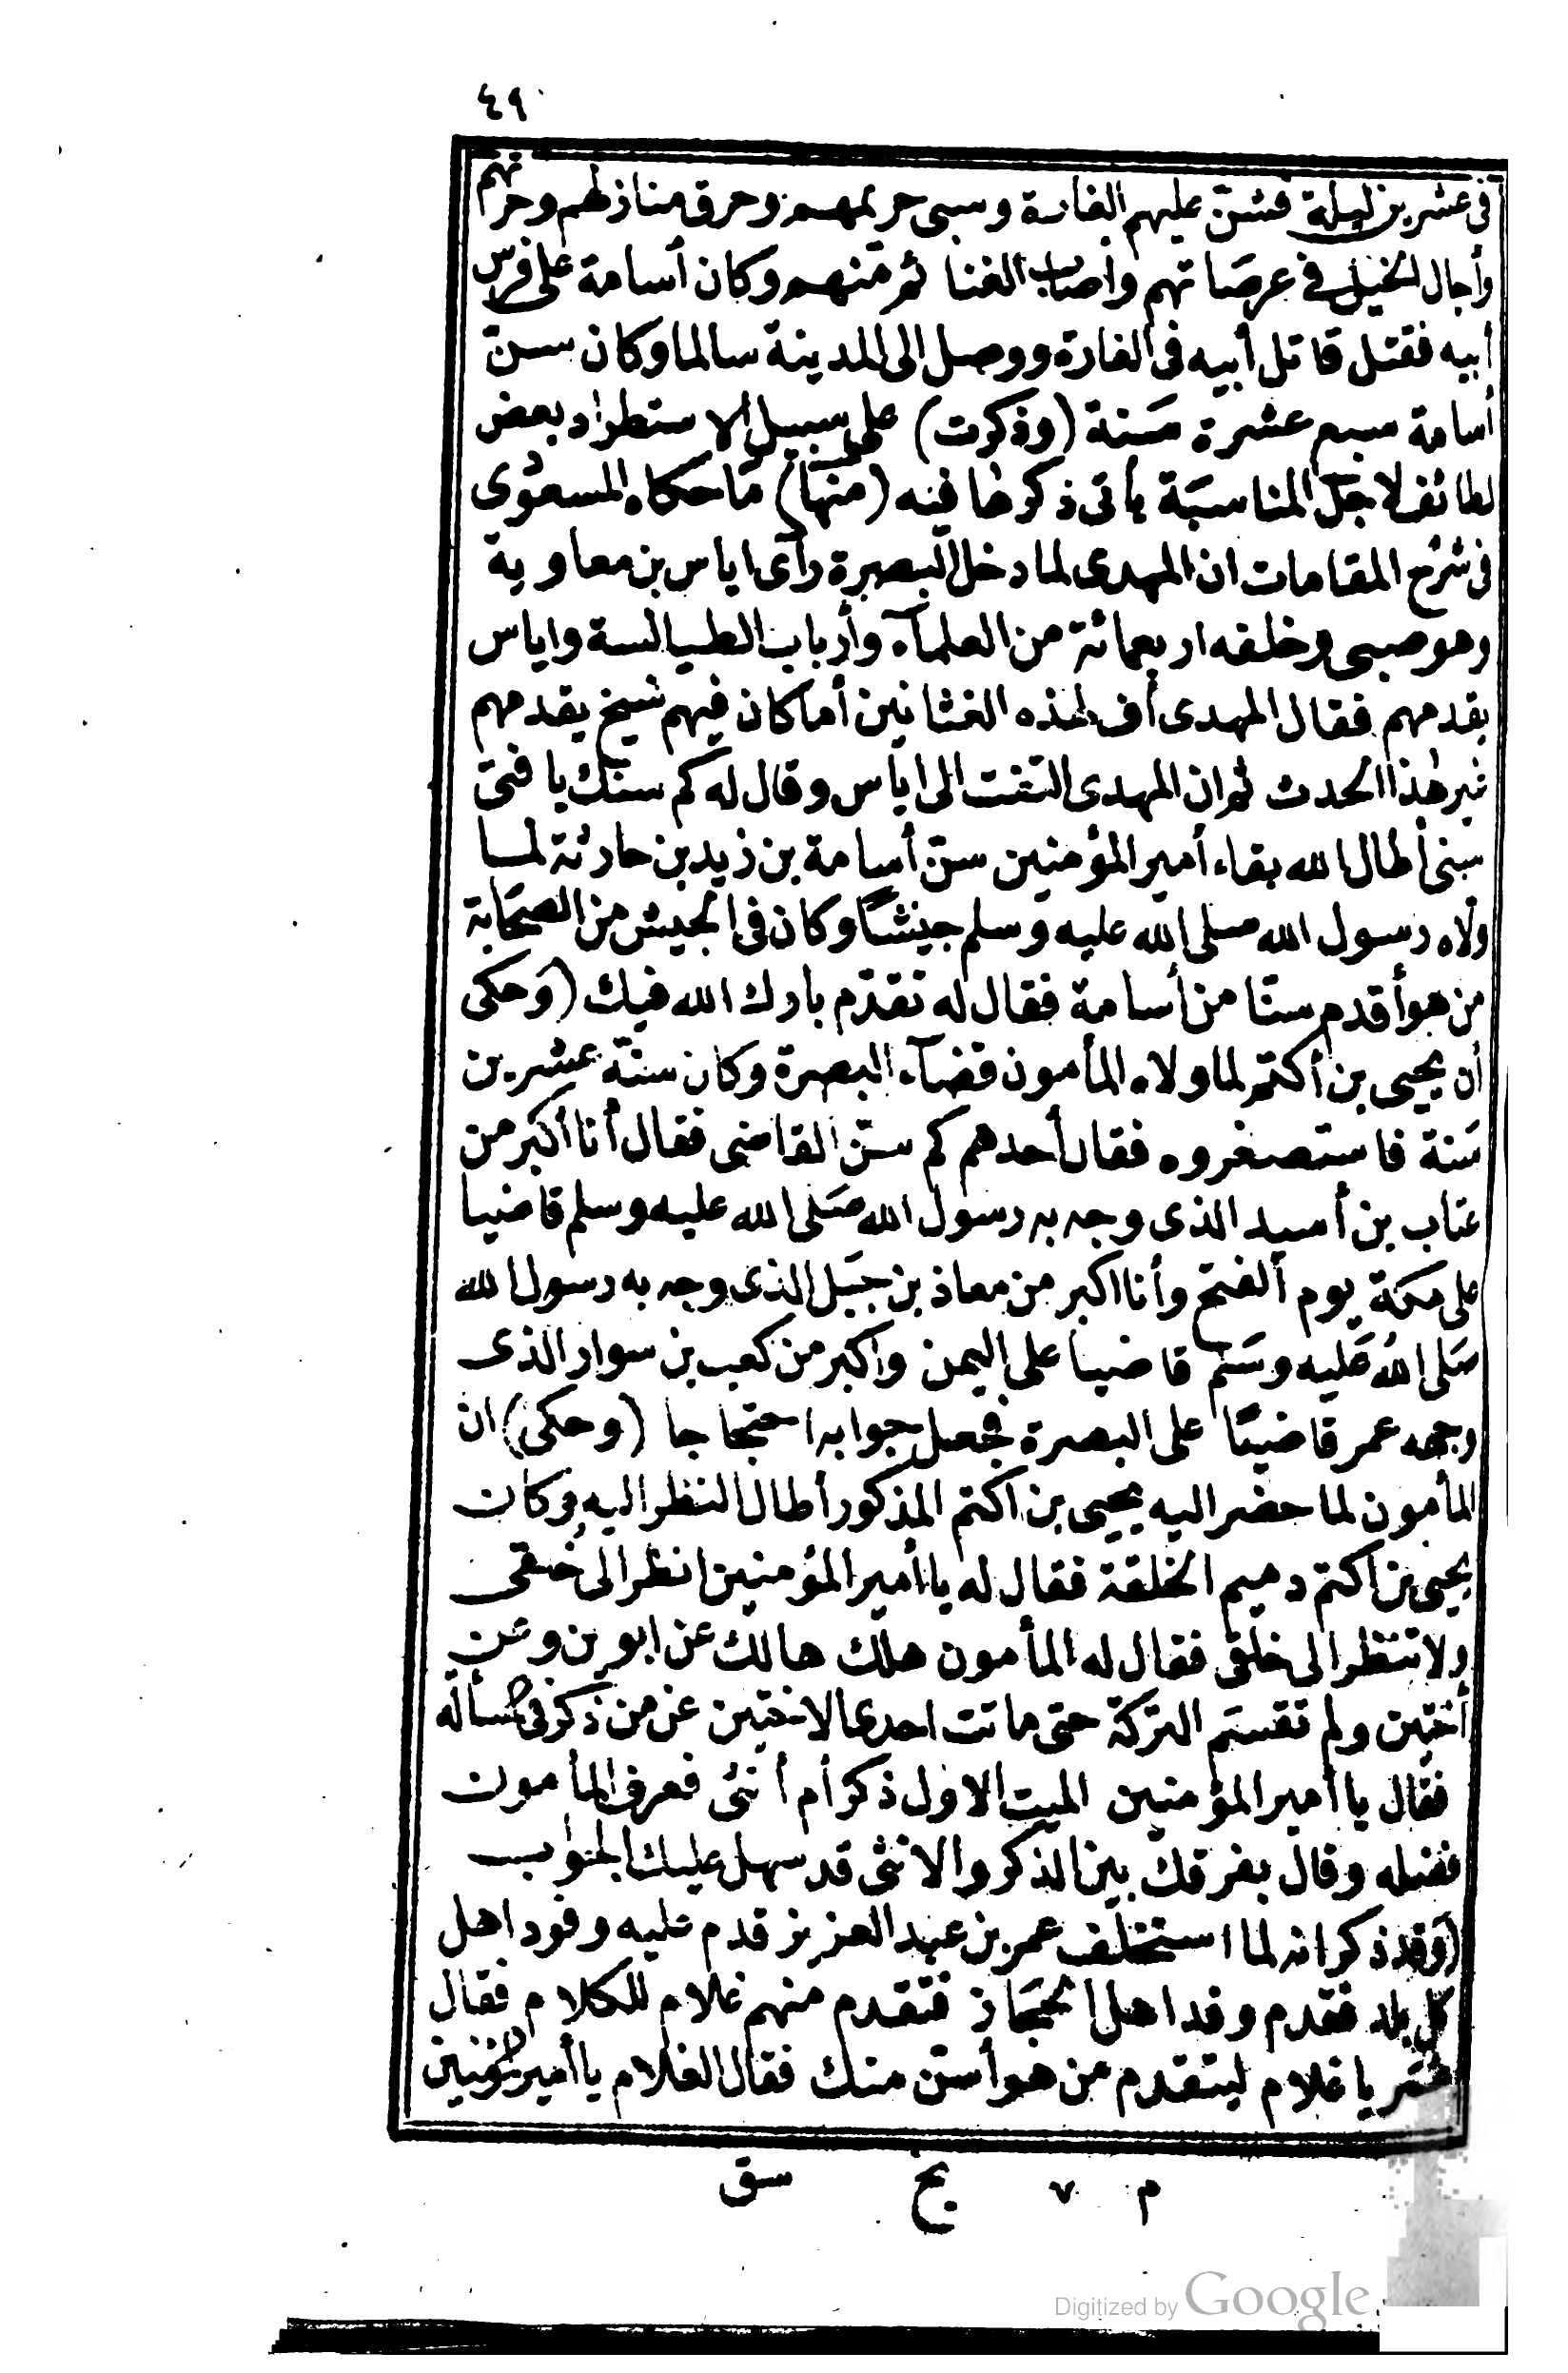 ٤٩
فى عشرين ليلة فشنّ عليهم الغارة وسبى حريمهم وحرق منازلهم وحرثهم
وأجال الخيل فى عرصاتهم وأصاب الغنائم منهم وكان أسامة على فرس
أبيه فقتل قاتل أبيه فى الغارة ووصل الى المدينة سالما وكان سنّ
أسامة سبع عشرة سَنة (وذكرت) على سبيل الاستطراد بعض
لطائف لاجل المناسبَة يأتى ذكرها فيه (منها) مَا حكاه المسعودى
فى شرح المقامات ان المهدى لما دخل البصرة رأى اياس بن معاوية
وهو صبى وخلفه اربعمائة من العلمآء وأرباب الطيالسة واياس
يقدمهم فقال المهدى أف لهذه العثانين أما كان فيهم شيخ يقدمهم
غير هذا الحدث ثم ان المهدى التفت الى اياس وقال له كم سنك يا فتى
سنى أطال الله بقاء أمير المؤمنين سنّ أسامة بن زيد بن حارثة لما
ولاه رسول الله صلى الله عليه وسلم جيشًا وكان فى الجيش من الصحَابة
من هو أقدم سنّا من أسامة فقال له تقدّم بارك الله فيك (وَحكى
أن يحيى بن أكثم لما ولاه المأمون قضآء البصرة وكان سنّه عشرين
سَنة فاستصغروه فقال أحدهم كم سنّ القاضى فقال أنا أكبر من
عتاب بن أسيد الذى وجه به رسول الله صَلى الله عليه وسلم قاضيا
على مكة يوم الفتح وأنا اكبر من معاذ بن جَبَل الذى وجه به رسول الله
صَلى اللهُ عَليه وسَلم قاضيا على اليمن واكبر من كعب بن سوار الذى
وجهه عمر قاضيًا على البصرة فجعل جوابه احتجاجا (وحكى) ان
المأمون لما حضر اليه يحيى بن اكثم المذكور أطال النظر اليه وكان
يحيى بن اكثم دميم الخلقة فقال له يا أمير المؤمنين انظر الى خُلقى
ولا تنظر الى خلقى فقال له المأمون هلك هالك عن ابوين وعن
أختين ولم تقسَم التركة حتى ماتت احدى الاختين عن من ذكر فى المسألة
فقال يا أمير المؤمنين الميت الاول ذكر أم أنثى فعرف المأمون
فضله وقال بفرقك بين الذكر والانثى قد سهل عليك الجواب
(وَقد ذكر انه لما استخلف عمر بن عبد العزيز قدم عليه وفود اهل
كل بلد فقدم وفد اهل الحجَاز فتقدم منهم غلام للكلام فقال
عمر يا غلام ليتقدم من هو أسنّ منك فقال الغلام يا أمير المؤمنين
م ٧ سق
Digitized by Google